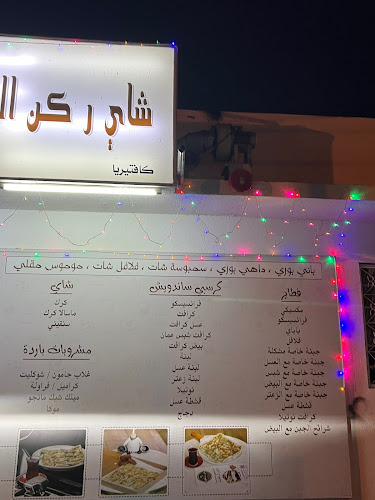 شاي ركن ال
كافتيريا
باني بوري ، داهي بوري ، سمبوسة شات ، فلافل شات ، موموس مقلي
فطاير
مكسيكي
فرانسيسكو
باباي
فلافل
جبنة خاصة مشكلة
جبنة خاصة مع العسل
جبنة خاصة مع شبس
جبنة خاصة مع البيض
جبنة خاصة مع الزعتر
قشطة عسل
كرافت نوتيلا
شرائح الجبن مع البيض
كرسبي ساندويش
فرانسيسكو
كرافت
عسل كرافت
كرافت شبس عمان
بيض كرافت
لبنة
لبنة عسل
لبنة زعتر
نوتيلا
قشطة عسل
دجاج
شاي
كرك
ماسالا كرك
سليماني
مشروبات باردة
غلاب جامون / شوكليت
كراميل / فراولة
ميلك شيك مانجو
موكا